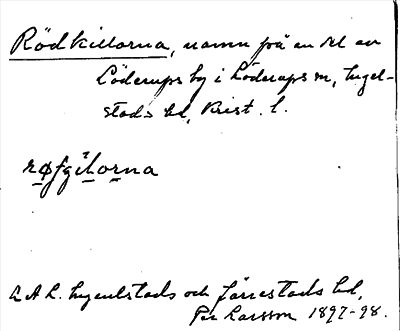 Rödkillorna, namn på en del av
Löderups by i Löderups sn, Ingel-
stads hd, Krist. l.
røfgilorna
LAL. Ingelstads och Järrestads hd,
Per Larsson 1897-98.